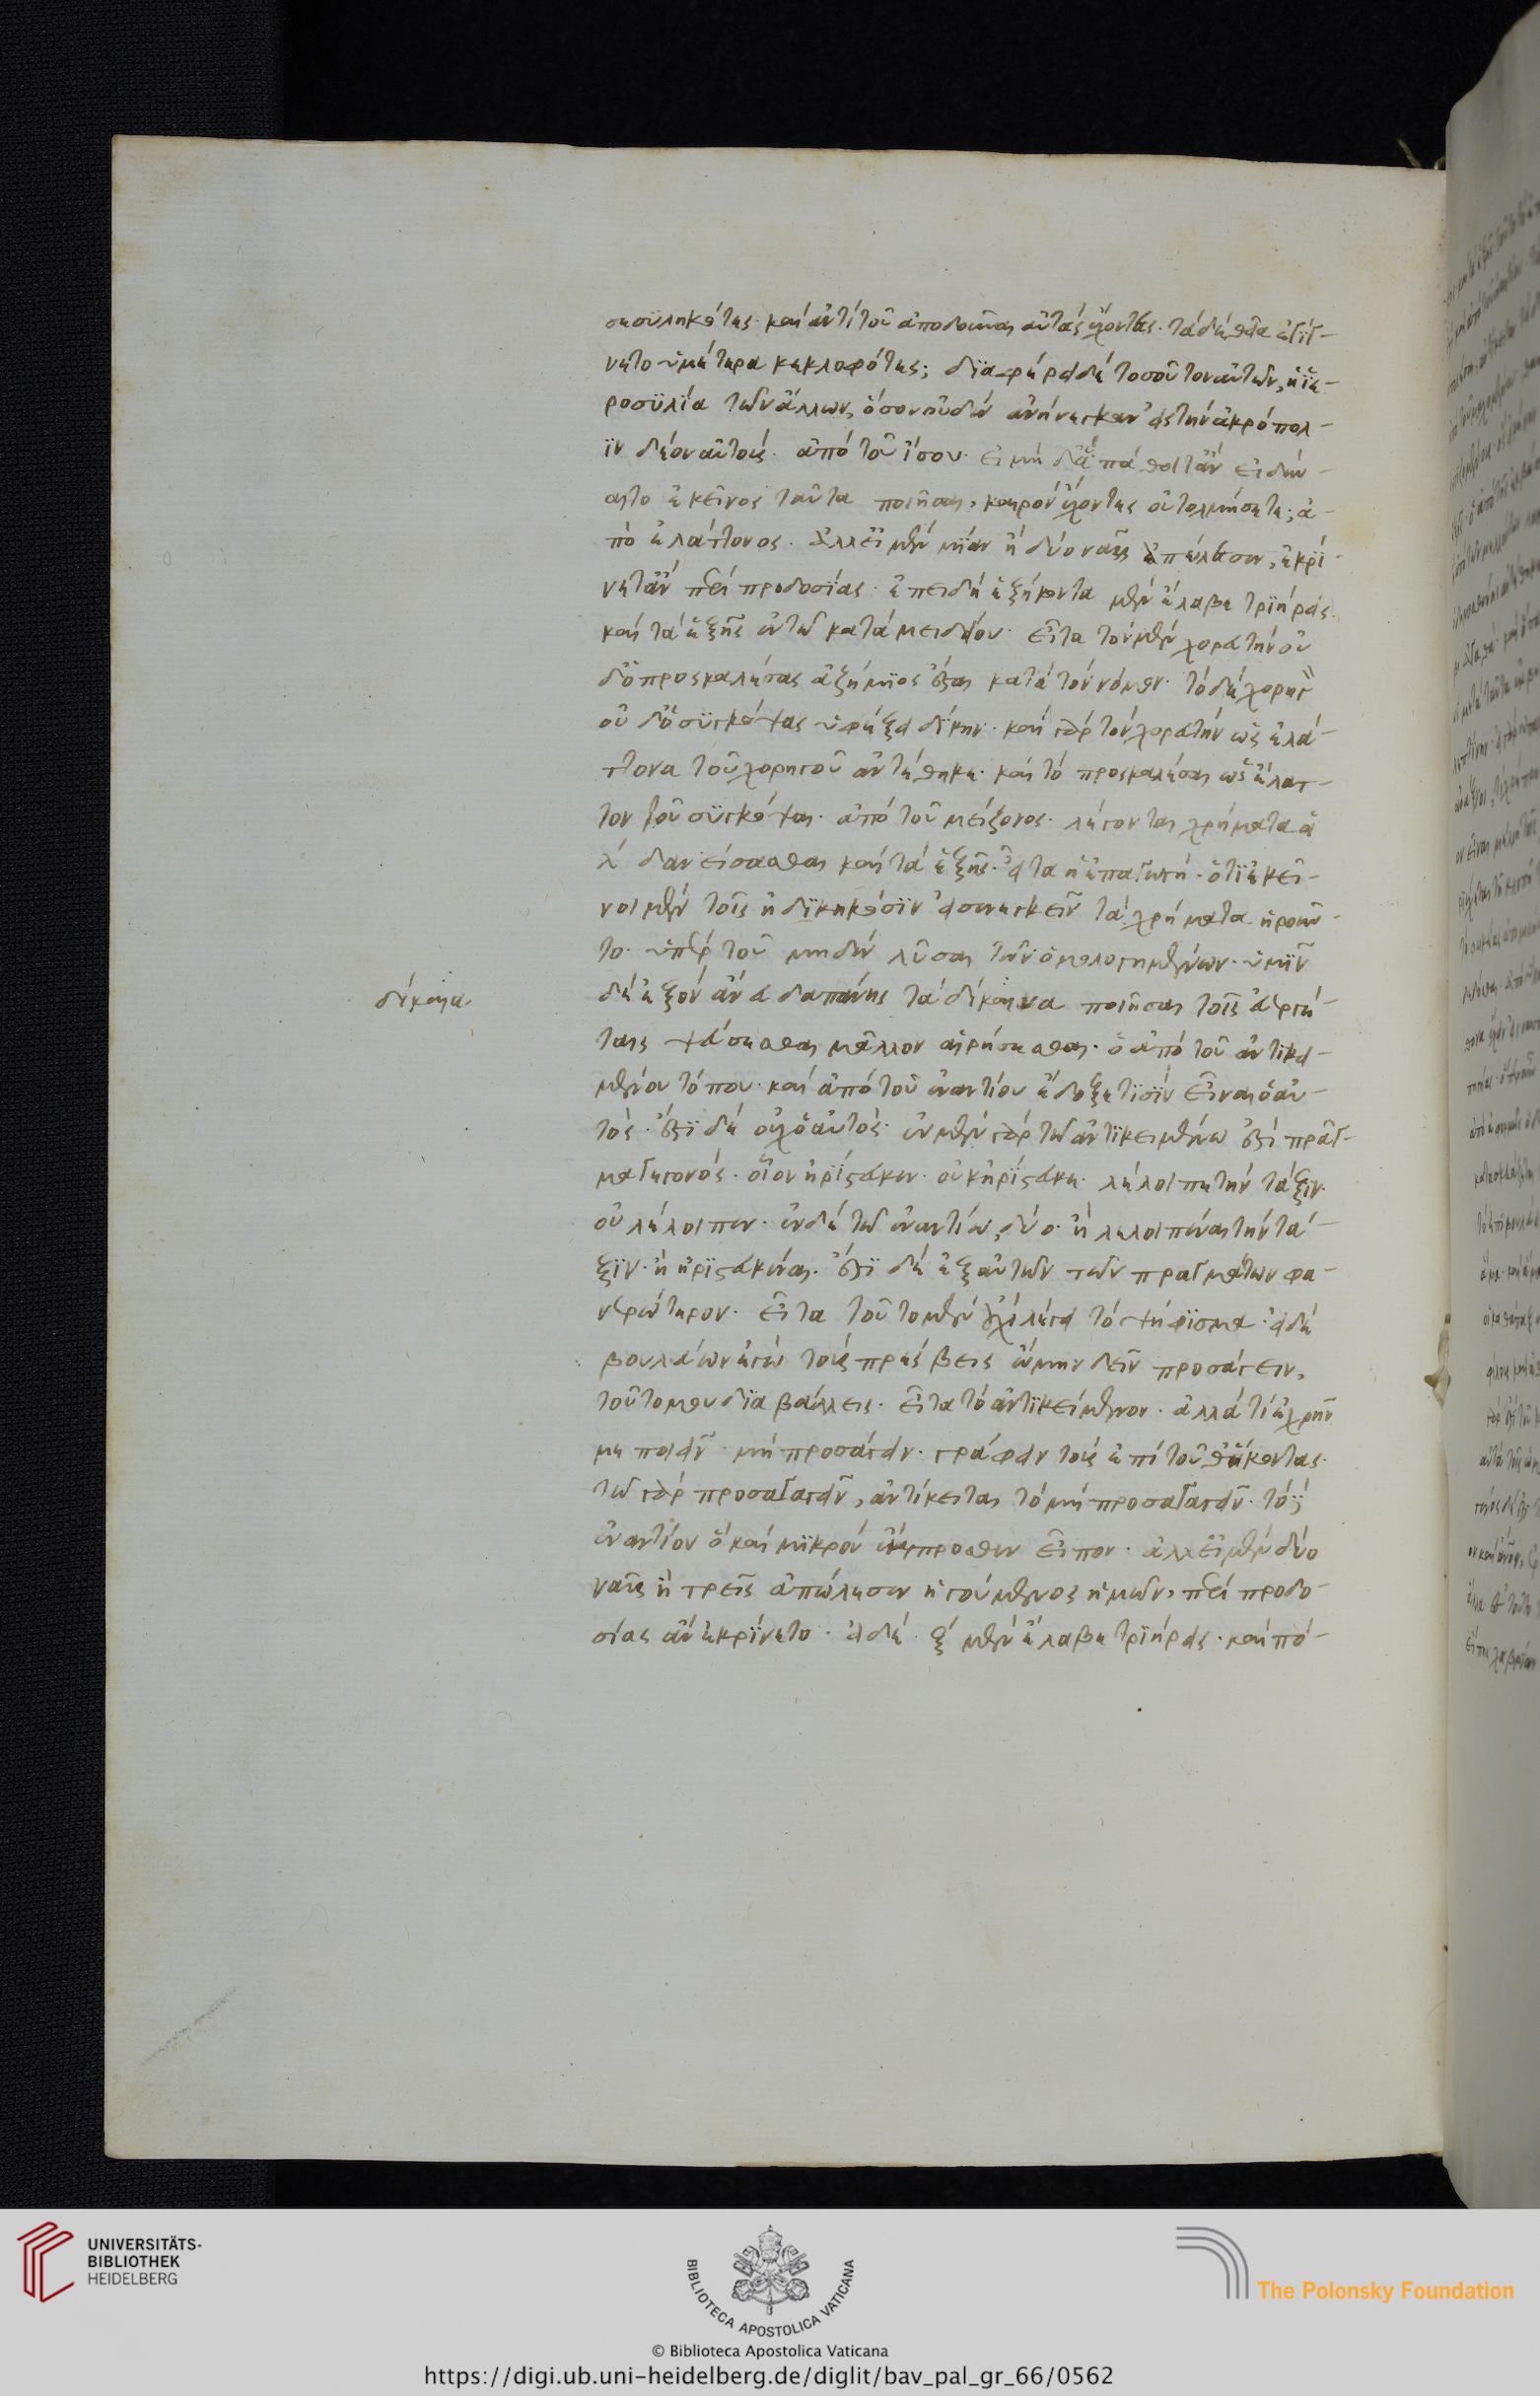 σεσϋληκότες· καὶ ἀντὶ τοῦ ἀποδοῦναι αὐτὰς ἔχοντες. τὰ δὲ ἐγίγ-
νετο ὑμέτερα κεκλοφότες; δϊαφέρει δὲ τοσοῦτον αὐτῶν, ἡ ἱε-
ροσϋλΐα τῶν ἄλλων, ὅσον οὐδὲν ἀνήνεγκαν εἰς τὴν ἀκρόπολ-
ϊν δέον αὐτούς. ἀπὸ τοῦ ἴσου. εἰ μὴ δ' ἃ πάθοιτ' ἂν εἰ δύν-
αιτο ἐκεῖνος ταῦτα ποιῆσαι, καιρὸν ἔχοντες οὐ τολμήσετε; ἀ-
πὸ ἐλάττονος. ἀλλ' εἰ μὲν μΐαν ἢ δύο ναῦς ἀπώλεσεν, ἐκρΐ-
νετ' ἂν περὶ προδοσΐας· ἐπειδὴ ἑξήκοντα μὲν ἔλαβε τρϊήρεις·
καὶ τὰ ἑξῆς ἐν τῶ κατὰ μειδίου. εἶτα τὸν μὲν χορευτὴν οὐ
δ' ὁ προσκαλέσας ἀζήμϊος ἔσται κατὰ τὸν νόμον. τὸ δὲ χορηγ
οὐ δ' ὁ σϋγκόψας ὑφέξει δίκην· καὶ γὰρ τὸν χορευτὴν ὡς ἐλά-
ττονα τοῦ χορηγοῦ ἀντέθηκε· καὶ τὸ προσκαλέσαι ὡς ἔλατ-
τον τοῦ σϋγκόψαι. ἀπὸ τοῦ μείζονος· λέγονται χρήματα ἅ
λ' δανείσασθαι καὶ τὰ ἑξῆς. εἶτα ἡ ἐπαγωγή· ὅτϊ ἐκεῖ-
νοι μὲν τοῖς ἠδϊκηκόσϊν εἰσενεγκεῖν τὰ χρήματα ἡροῦν-
το· ὑπὲρ τοῦ μηδὲν λῦσαι τῶν ὁμολογημένων· ὑμῖν
δὲ ἐξὸν ἄνευ δαπάνης τὰ δίκαια ποιῆσαι τοῖς εὐεργέ-
ταις ψεύσεσθαι μᾶλλον αἱρήσεσθαι. ὁ ἀπὸ τοῦ ἀντικει-
μένου τόπου· καὶ ἀπὸ τοῦ ἐναντίου ἔδοξε τϊσὶν εἶναι ὁ αὐ-
τός· ἔστϊ δὲ οὐχ ὁ αὐτός· ἐν μὲν γὰρ τῶ ἀντϊκειμένω ἐστὶ πρᾶγ-
μα γεγονός· οἷον ἠρΐστευκεν· οὐκ ἠρΐστευκε· λέλοιπε τὴν τάξϊν·
οὐ λέλοιπεν· ἐν δὲ τῶ ἐναντίω, δύο· ἢ λελοιπέναι τὴν τά-
ξϊν· ἢ ἠρϊστευκέναι. ἔστϊ δὲ ἐξ αὐτῶν τῶν πραγμάτων φα-
νερώτερον. εἶτα τοῦτο μὲν οὐχὶ λέγει τὸ ψήφϊσμα· εἰ δὲ
βουλεύων ἐγὼ τοὺς πρέσβεις ὤμην δεῖν προσάγειν,
τοῦτό μου δϊαβάλλεις. εἶτα τὸ ἀντϊκείμενον. ἀλλὰ τί ἐχρῆν
με ποιεῖν· μὴ προσάγειν· γράφειν τοὺς ἐπὶ τοῦθ' ἥκοντας·
τῶ γὰρ προσαγαγεῖν, ἀντίκειται τὸ μὴ προσαγαγεῖν. τὸ ἐξ
ἐναντίου ὃ καὶ μϊκρὸν ἔμπροσθεν εἶπον. ἀλλ' εἰ μὲν δύο
ναῦς ἢ τρεῖς ἀπώλεσεν ἡγούμενος ἡμῶν, περὶ προδο-
σίας ἂν ἐκρΐνετο. εἰ δὲ ξ' μὲν ἔλαβε τρϊήρεις· καὶ πό-
δίκαια
UNIVERSITÄTS-
BIBLIOTHEK
HEIDELBERG
BIBLIOTECA APOSTOLICA VATICANA
The Polonsky Foundation
© Biblioteca Apostolica Vaticana
https://digi.ub.uni-heidelberg.de/diglit/bav_pal_gr_66/0562